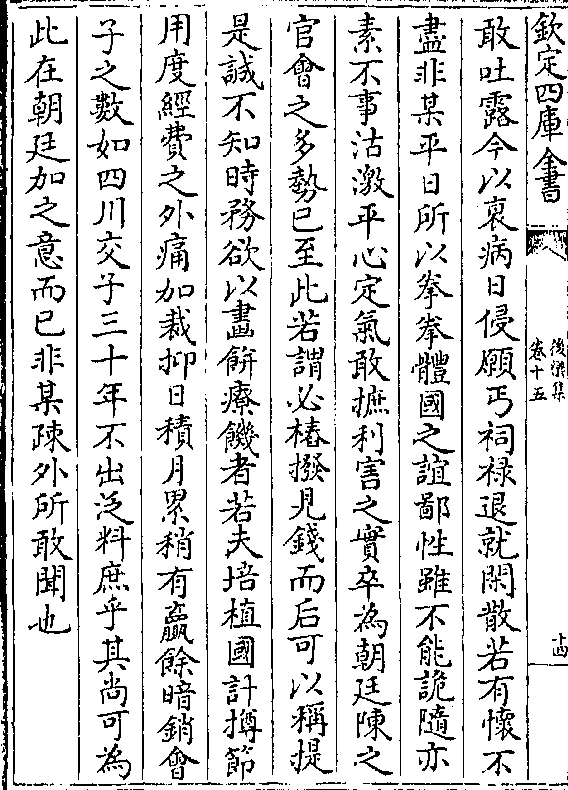 欽定四庫全書
後樂集
卷十五
十四
敢吐露今以衰病日侵願丐祠禄退就閑散若有懷不
盡非某平日所以拳拳體國之誼鄙性雖不能詭隨亦
素不事沽激平心定氣敢摭利害之實卒為朝廷陳之
官會之多勢已至此若謂必樁撥見錢而后可以稱提
是誠不知時務欲以畫餅療饑者若夫培植國計撙節
用度經費之外痛加裁抑日積月累稍有贏餘暗銷會
子之數如四川交子三十年不出泛料庶乎其尚可為
此在朝廷加之意而已非某疎外所敢聞也